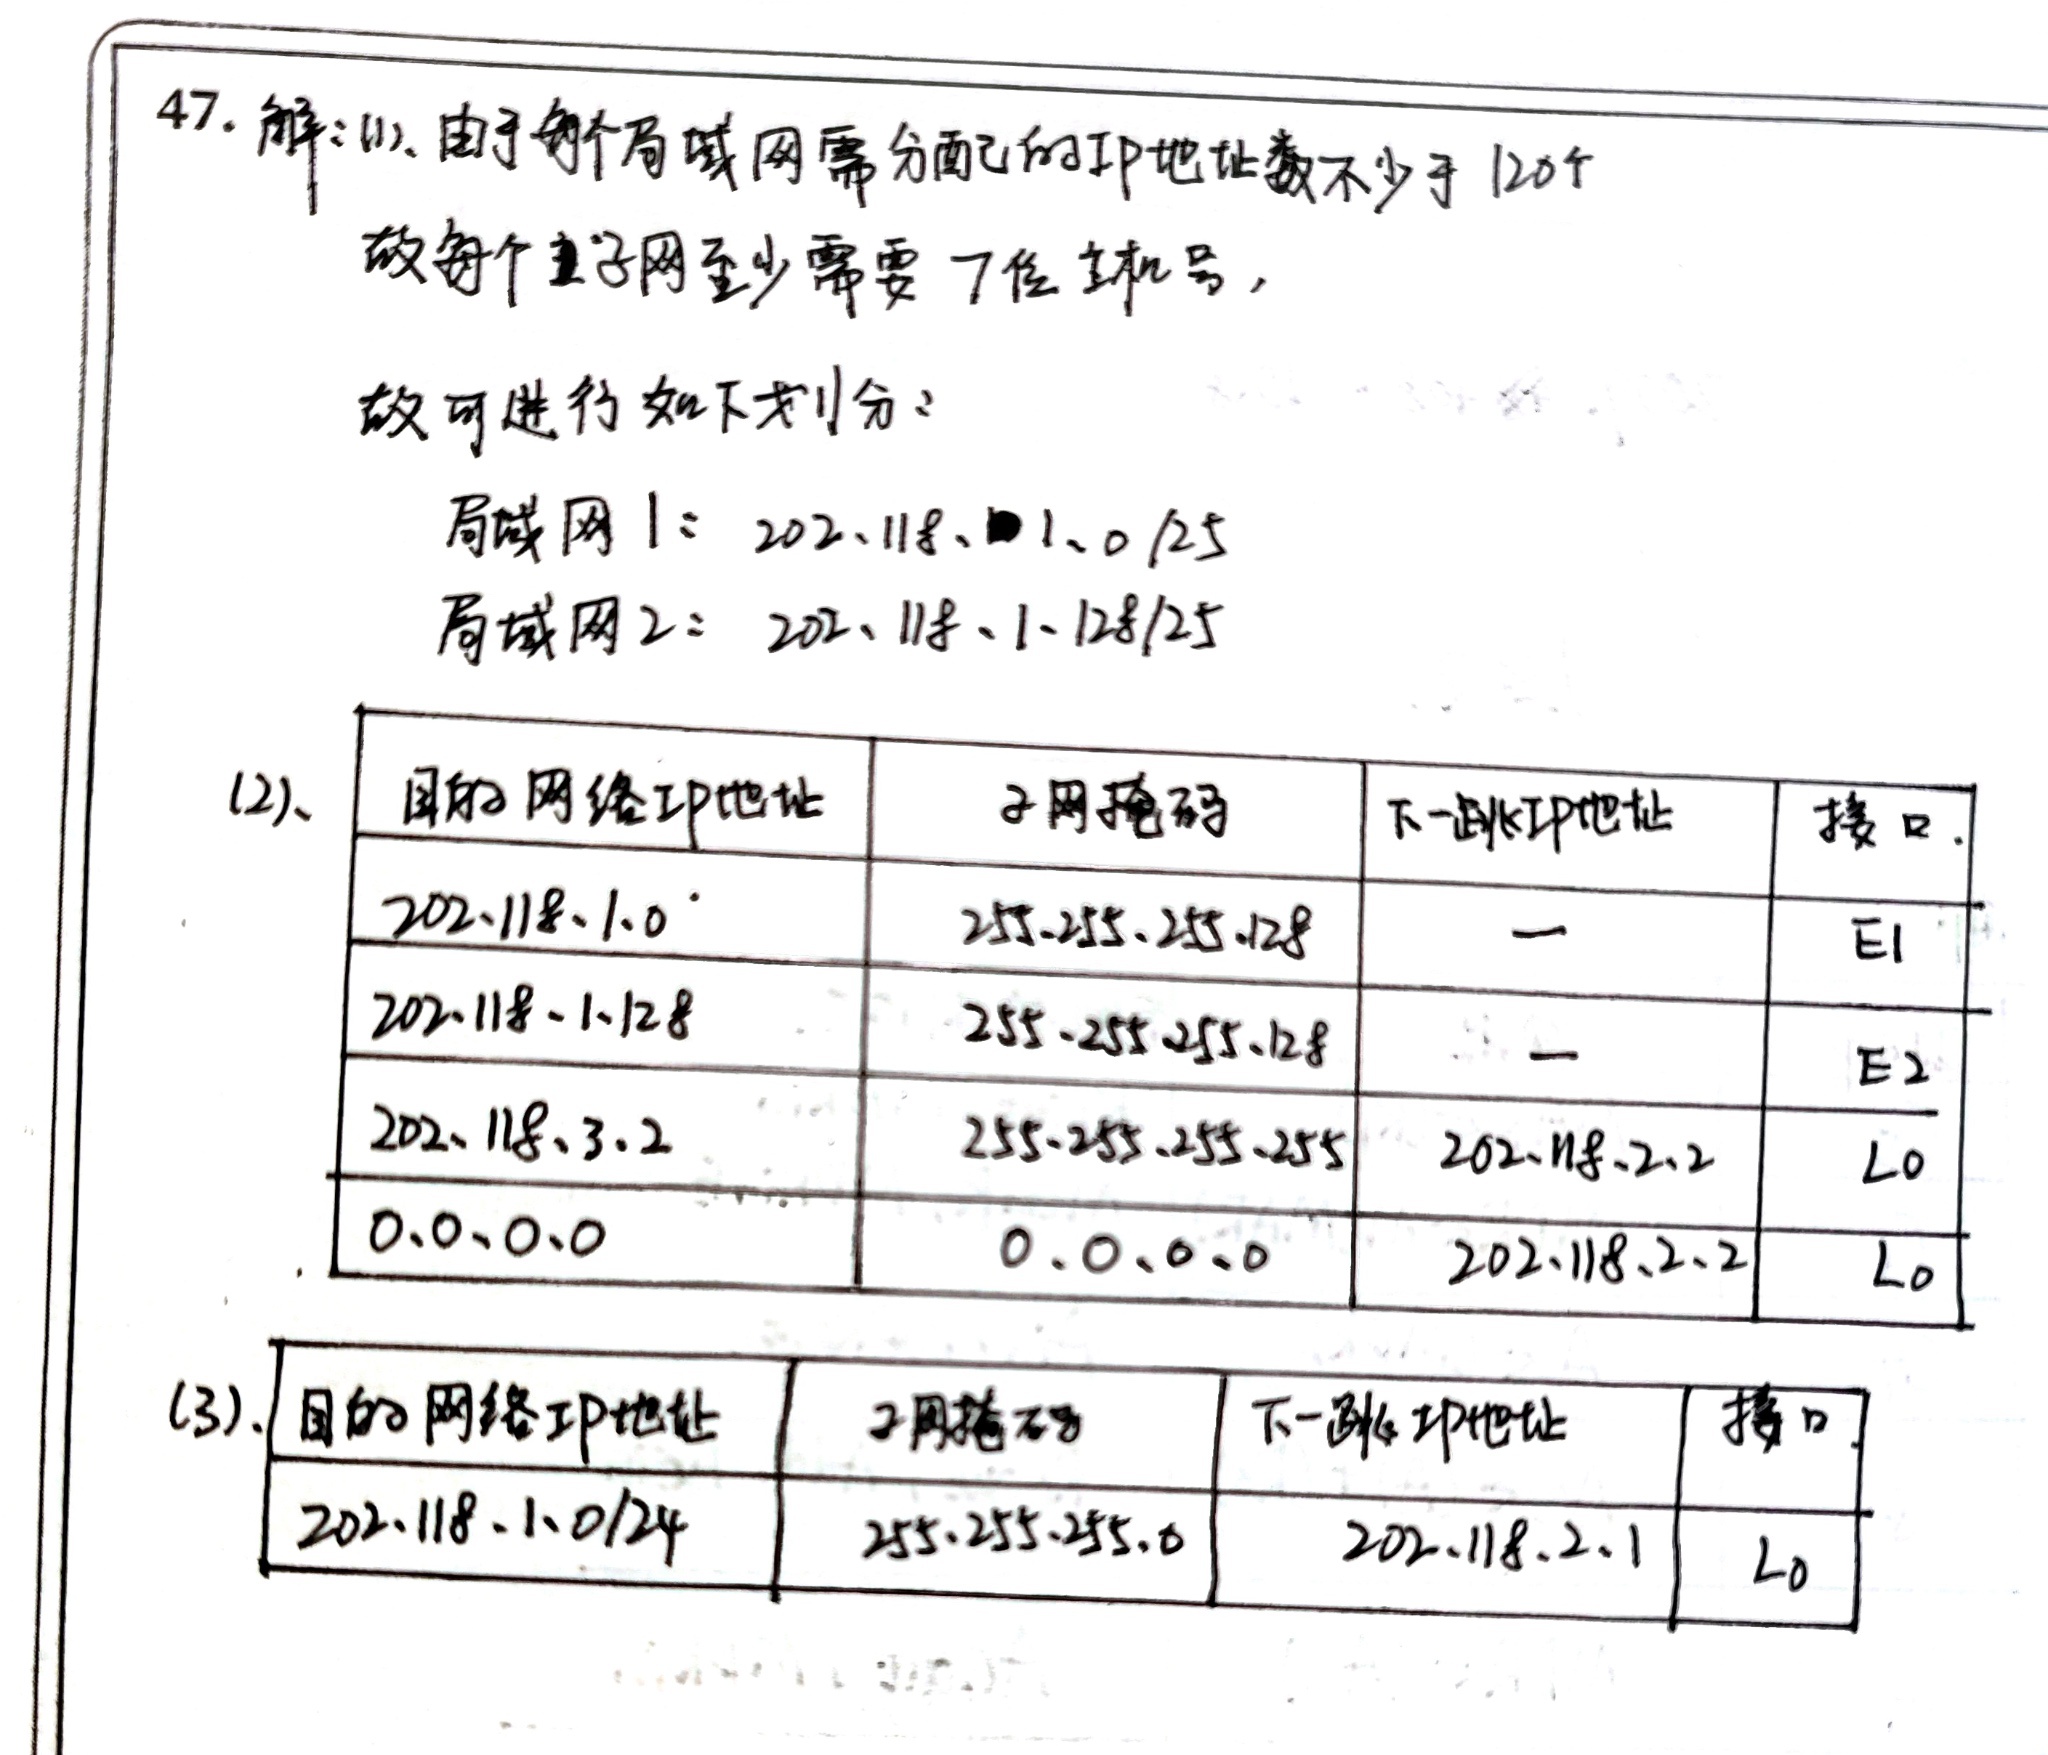 47. 解:(1)、由于每个局域网需分配的IP地址数不少于120个
故每个子网至少需要7位主机号,
故可进行如下划分:
局域网1: 202、118、1、0/25
局域网2: 202、118、1、128/25
(2)、 目的网络IP地址 子网掩码 下一跳IP地址 接口.
202、118、1、0 255.255、255.128 — E1
202.118、1、128 255.255.255.128 — E2
202、118、3.2 255.255.255.255 202.118.2.2 L0
0.0、0.0 0.0.0.0 202.118、2、2 L0
(3). 目的网络IP地址 子网掩码 下一跳IP地址 接口.
202、118、1、0/24 255.255.255.0 202、118.2、1 L0